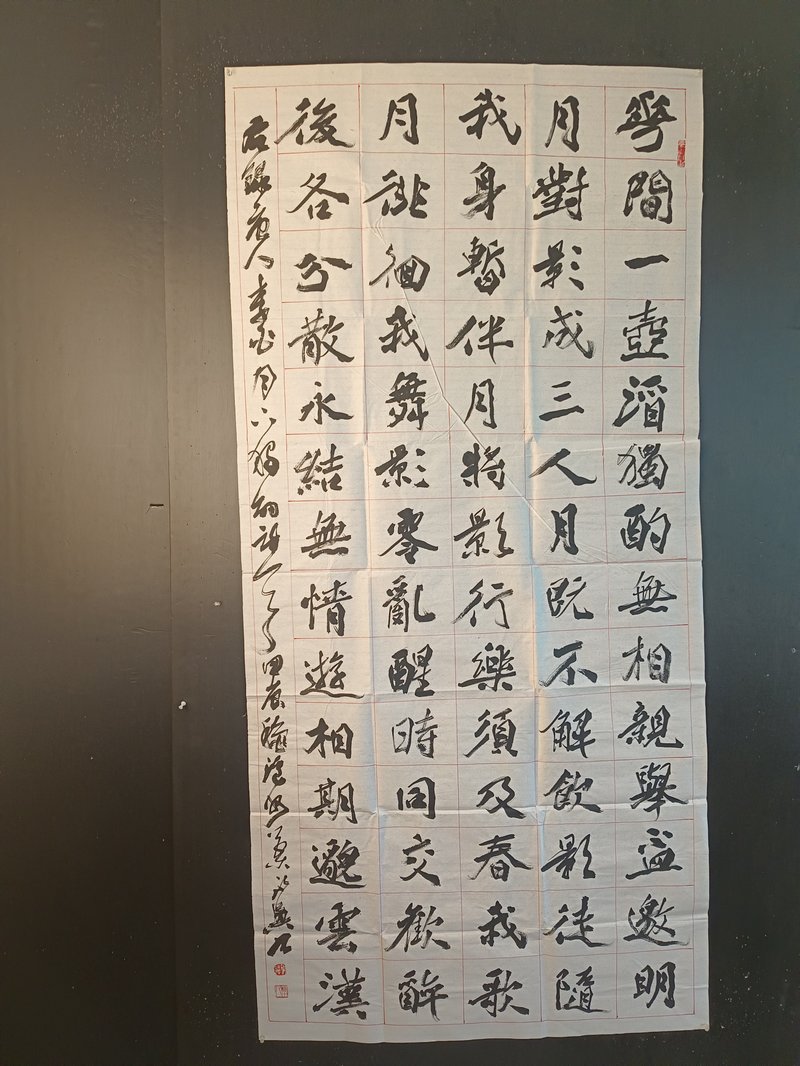 花間一壺酒獨酌無相親舉盃邀明
月對影成三人月既不解飲影徒隨
我身暫伴月將影行樂須及春我歌
月徘徊我舞影零亂醒時同交歡醉
後各分散永結無情遊相期邈雲漢
右錄唐人李白月下獨酌詩一首甲辰